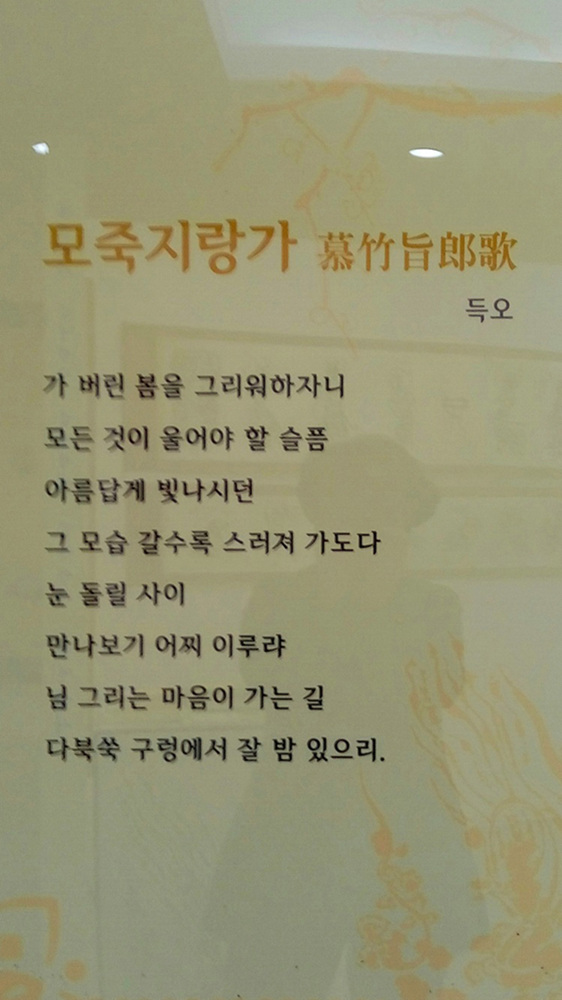 모죽지랑가 慕竹旨郎歌
득오
가 버린 봄을 그리워하자니
모든 것이 울어야 할 슬픔
아름답게 빛나시던
그 모습 갈수록 스러져 가도다
눈 돌릴 사이
만나보기 어찌 이루랴
님 그리는 마음이 가는 길
다북쑥 구렁에서 잘 밤 있으리.